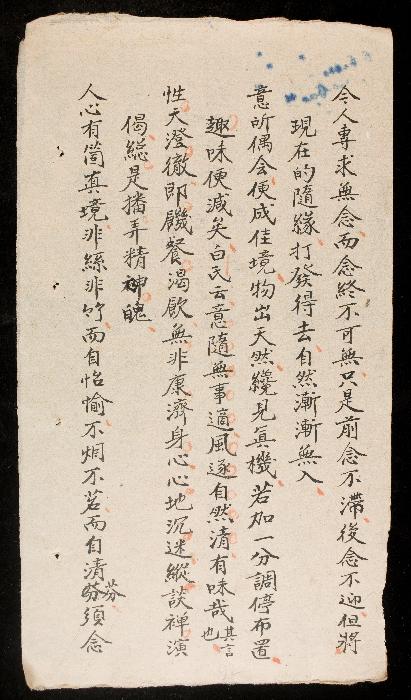 今人專求無念而念終不可無只是前念不滯後念不迎但將
現在的隨緣打發得去自然漸漸無入
意所偶会便成佳境物出天然纔見真機若加一分調停布置
趣味便減矣白氏云意隨無事適風逐自然清有味哉其言也
性天澄徹即饑餐渴飲無非康濟身心心地沉迷縱談禅演
偈總是播弄精神魄
人心有箇真境非絲非竹而自怡愉不烟不茗而自清芬須念